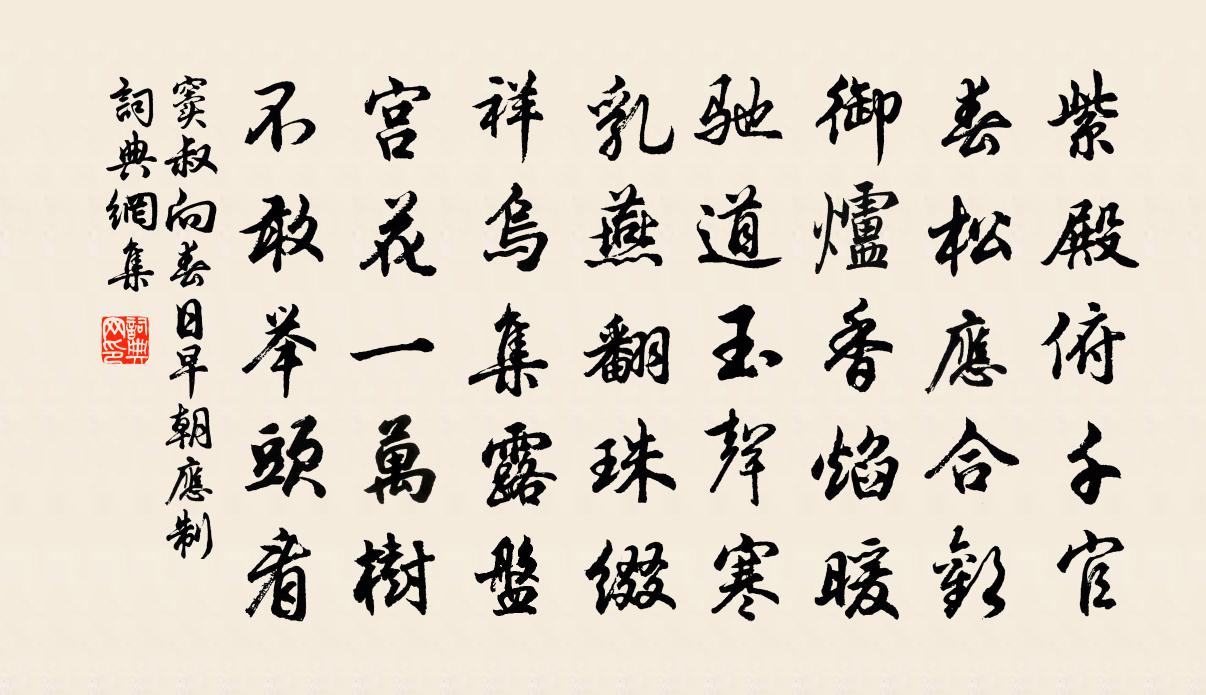 紫殿俯千官
春松應合歡
御爐香焰暖
馳道玉聲寒
乳燕翻珠綴
祥烏集露盤
宮花一萬樹
不敢举頭看
竇叔向春日早朝應制
詞典網集
詞典网印